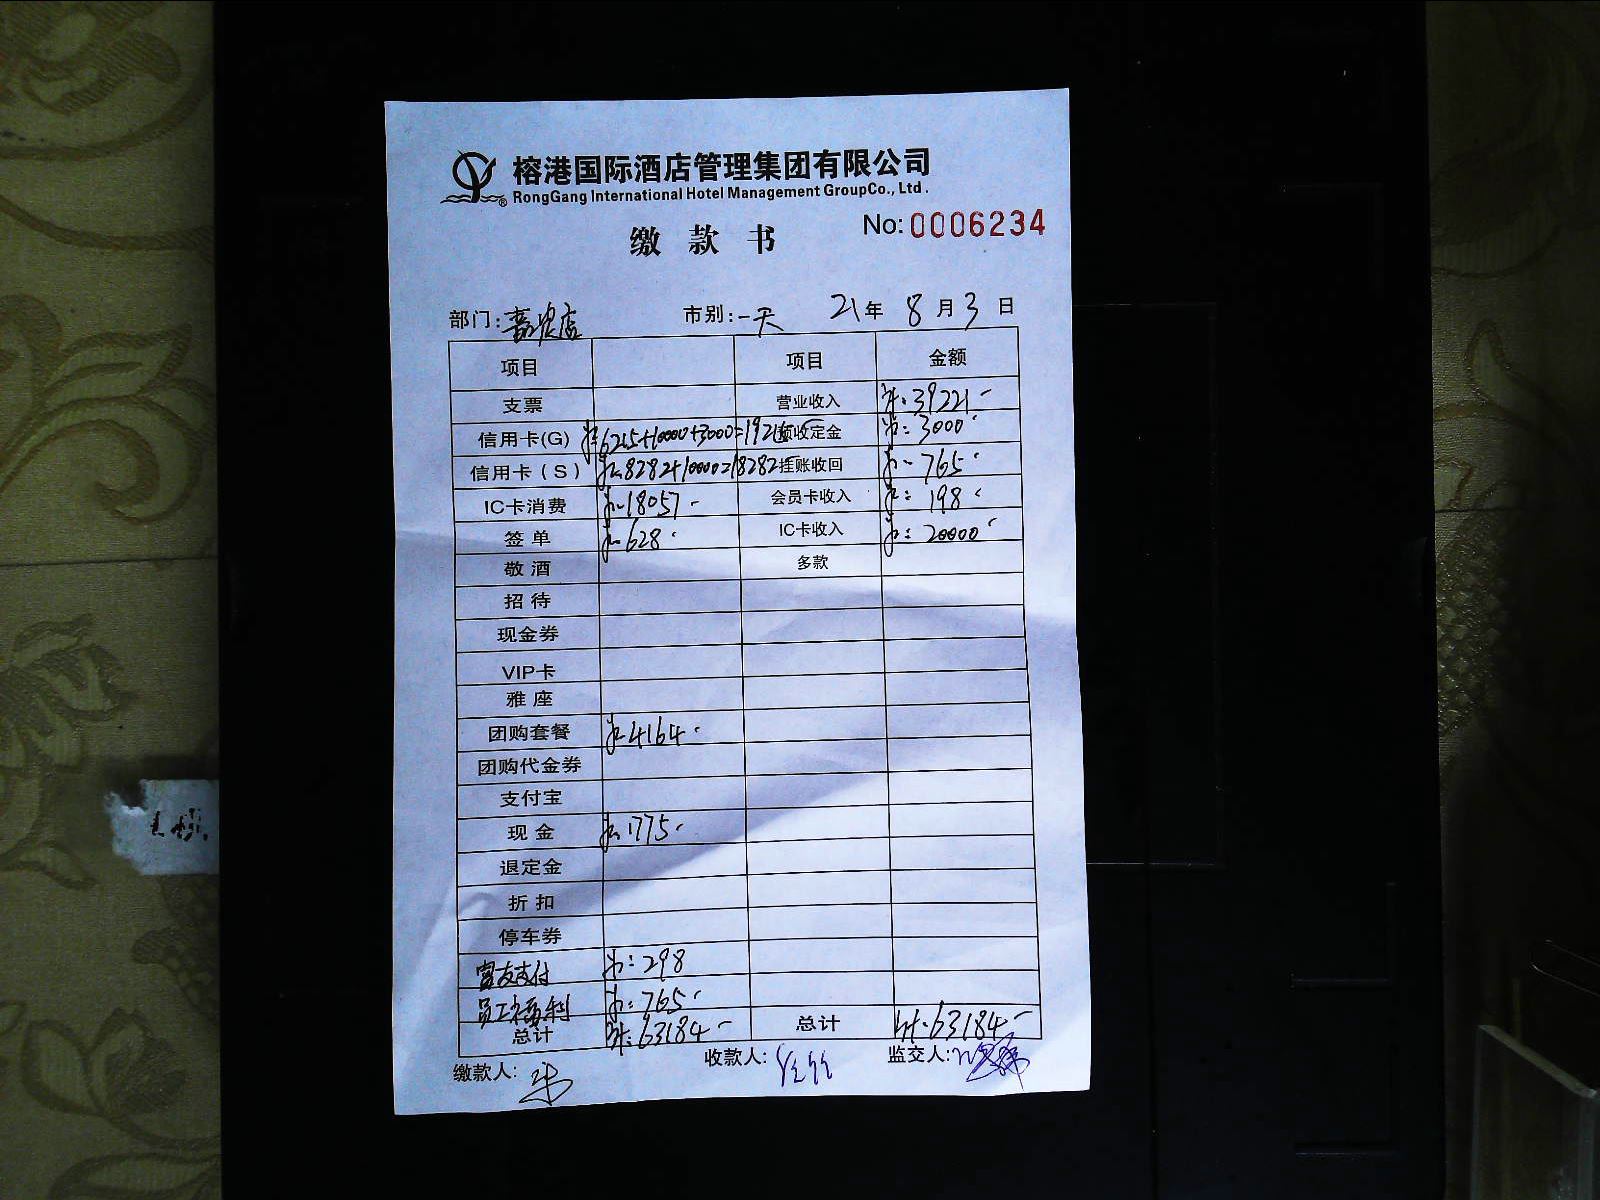 榕港国际酒店管理集团有限公司
RongGang International Hotel Management GroupCo., Ltd.
缴款书 No:0006234
部门: 市别:一天 21年 8月3日
项目 项目 金额
支票 营业收入 39221-
信用卡(G) 6215+10000+3000=19215 预收定金 3000
信用卡(S) 8282+10000=18282 挂账收回 765
IC卡消费 18057 会员卡收入 198
签单 628 IC卡收入 20000
敬酒 多款
招待
现金券
VIP卡
雅座
团购套餐 4164
团购代金券
支付宝
现金 1775
退定金
折扣
停车券
富友支付 298
员工福利 765
总计 63184- 总计 63184-
缴款人: 收款人: 监交人: